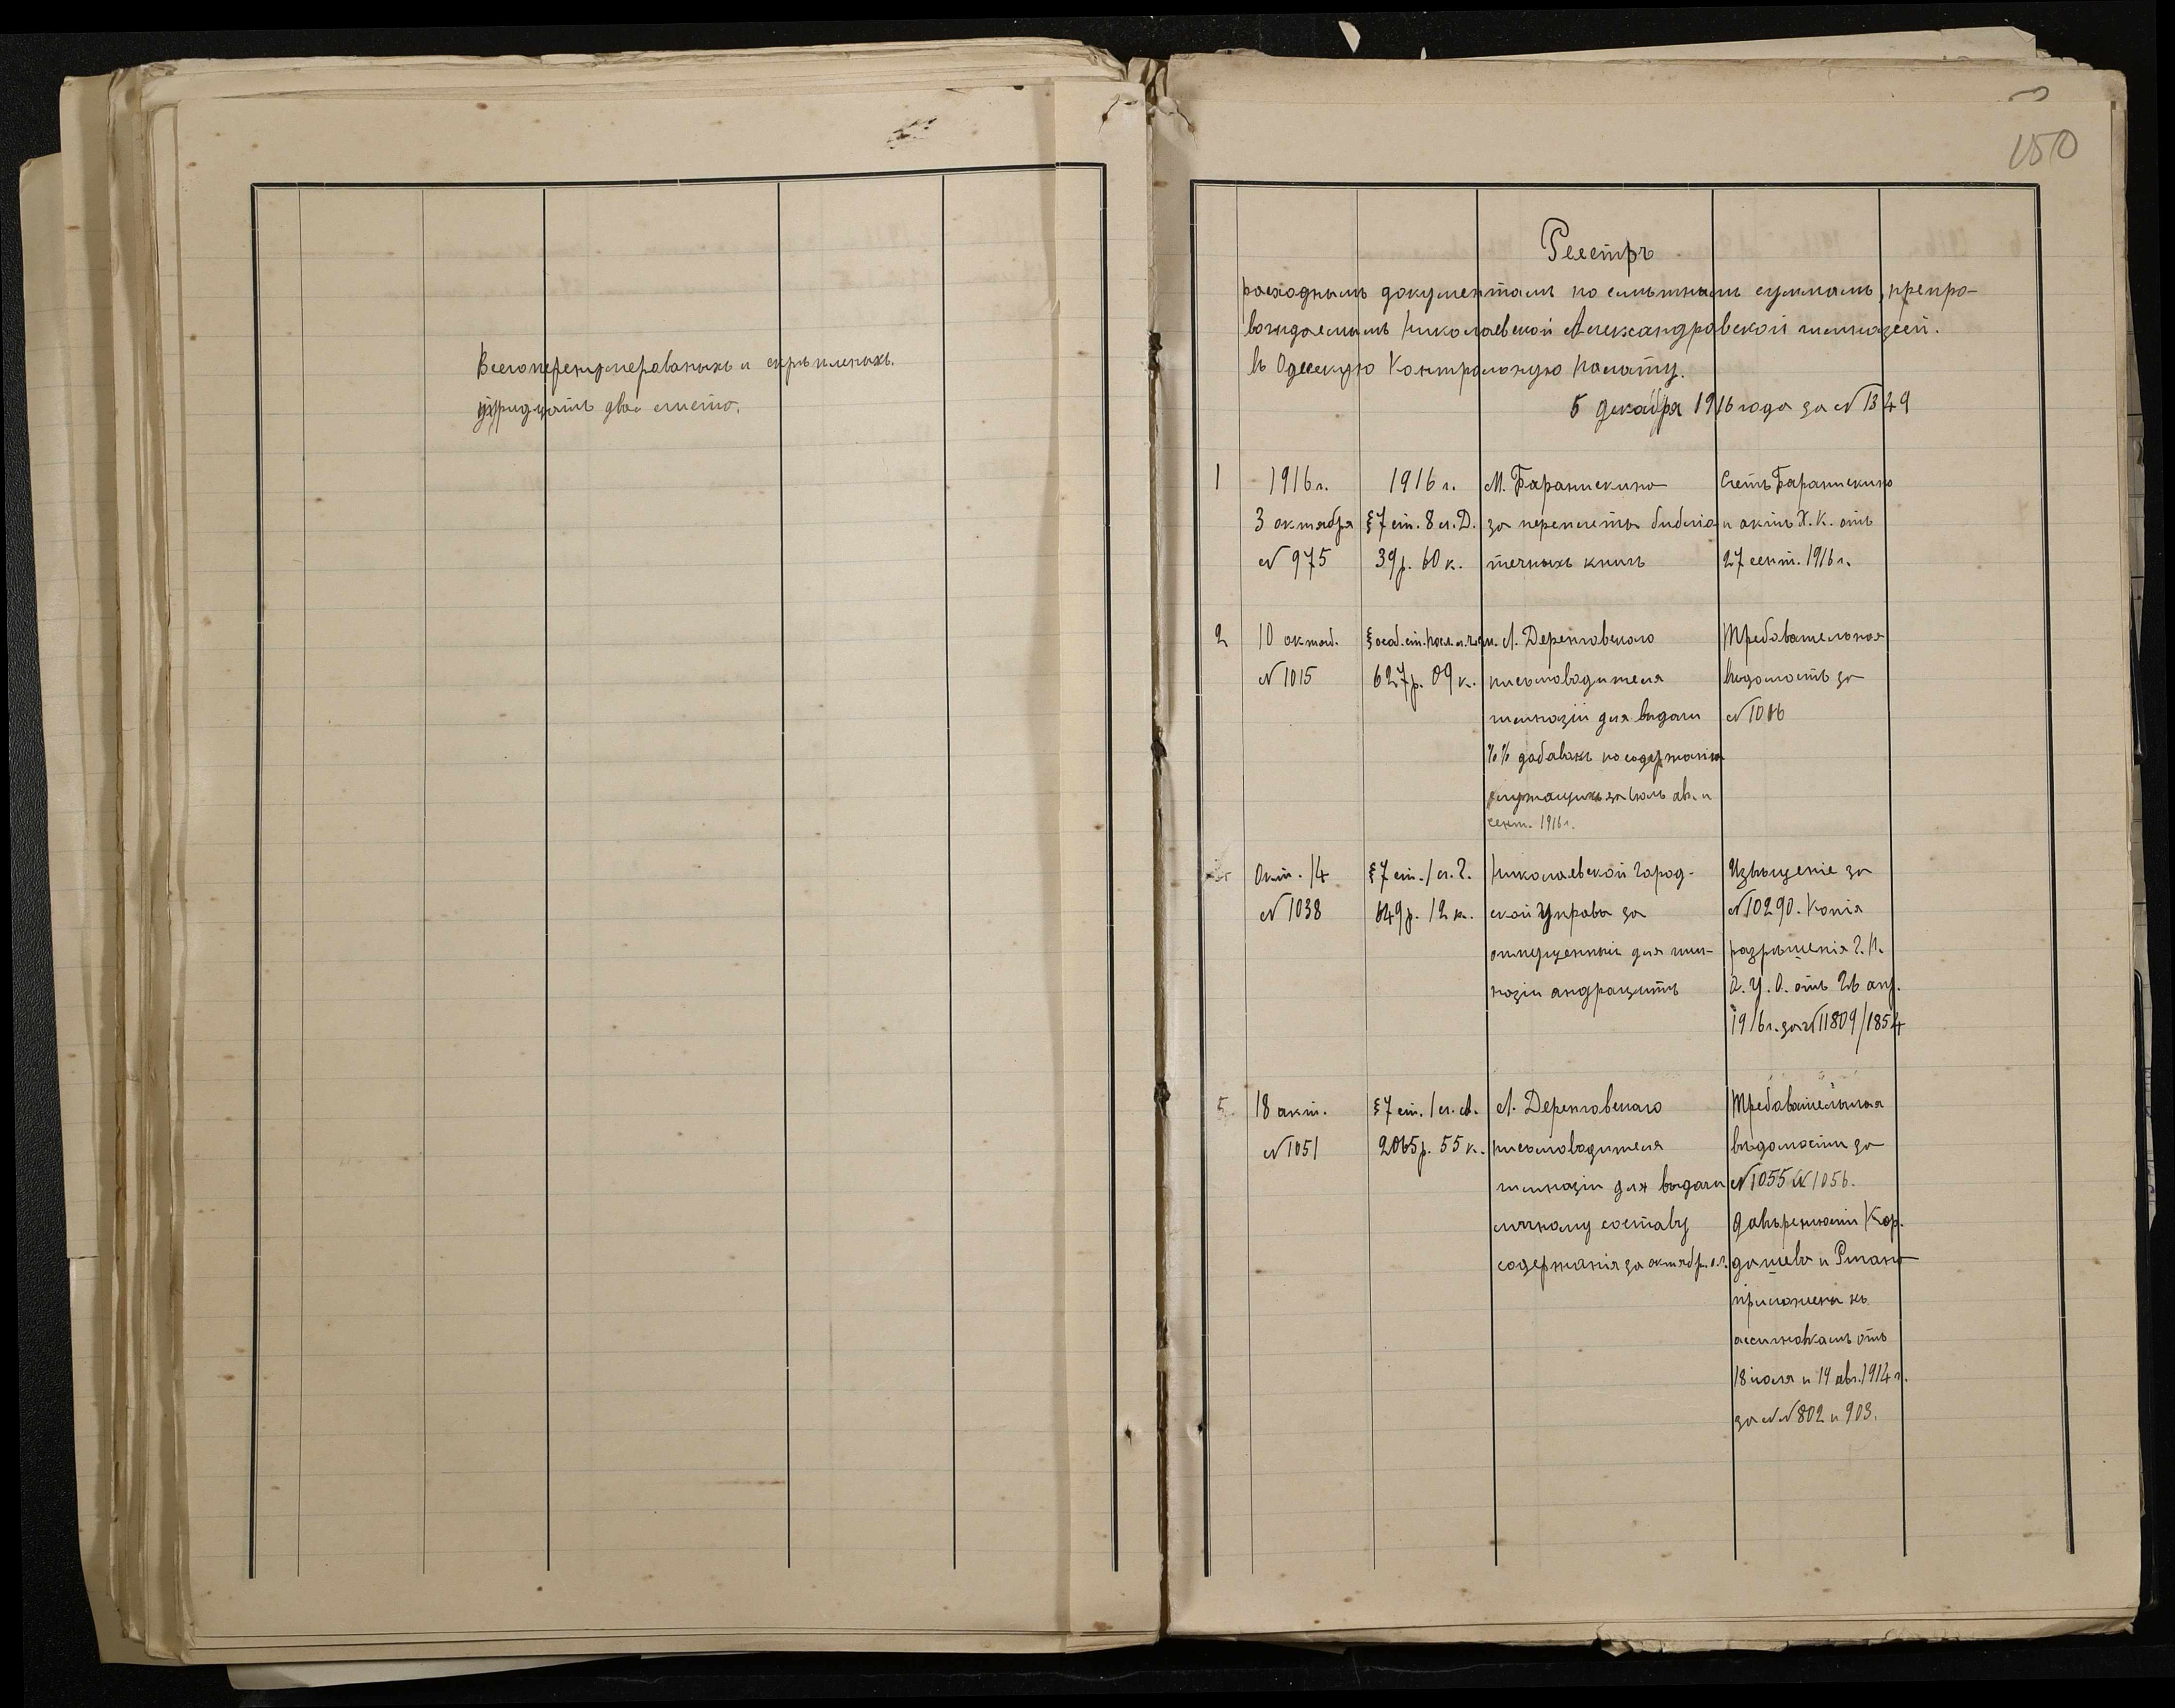 Всего перенумерованыхъ и скрѣпленыхъ.
тридцать два листа.
150
Реестръ
расходнымъ документамъ по смѣтнымъ суммамъ, препро-
вождаемымъ Николаевской Александровской гимназіей.
въ Одесскую Контрольную Палату.
5 декабря 1916 года за № 1349
1
1916 г.
3 октября
№ 975
1916 г.
§ 7 ст. 8 л. Д.
39 р. 60 к.
М. Баранискино
за переплеты библіо
течныхъ книгъ
Счетъ Баранискино
и актъ Х. К. отъ
27 сент. 1916 г.
2
10 октяб.
№ 1015
627 р. 09 к.
Л. Деренговскаго
письмоводителя
гимназіи для выдачи
%% добавокъ по содержанію
служащихъ за іюль авг. и
сент. 1916 г.
Требовательная
вѣдомость за
№ 1016
Окт. 14
№ 1038
§ 7 ст. 1 л. Г.
649 р. 12 к.
Николаевской Город-
ской Управы за
отпущенный для гим-
назіи андрацитъ
Извѣщеніе за
№ 10290. Копія
разрѣшенія Г. П.
О. У. О. отъ 26 апр.
1916 г. за № 11809/1854
5
18 окт.
№ 1051
§ 7 ст. 1 л. А.
2065 р. 55 к.
Л. Деренговскаго
письмоводителя
гимназіи для выдачи
личному составу
содержанія за октябр. с.г.
Требовательная
вѣдомости за
№ 1055 и 1056.
Довѣренности Кар-
дашева и
приложены къ
ассигновкамъ отъ
18 іюля и 19 авг. 1914 г.
за №№ 802 и 903.